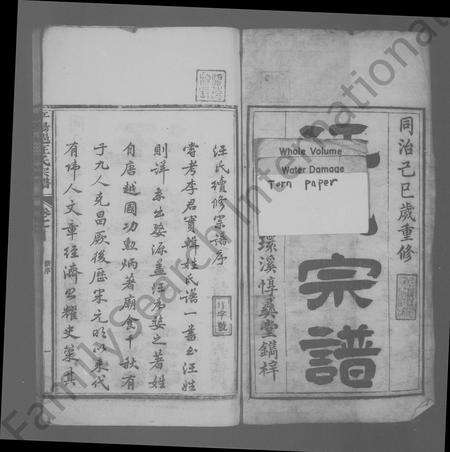 同治己巳歲重修
汪氏宗譜
環溪惇彝堂鐫梓
Whole Volume
Water Damage
Torn paper
汪氏續修宗譜序
嘗考李君實輯姓氏譜一書至汪姓
則詳系出婺源蓋汪為婺之著姓
自唐越國功勳炳著廟食千秋有
子九人克昌厥後歷宋元明以來代
有諱人文章經濟昭耀史策其
譜序
一
FamilySearch International